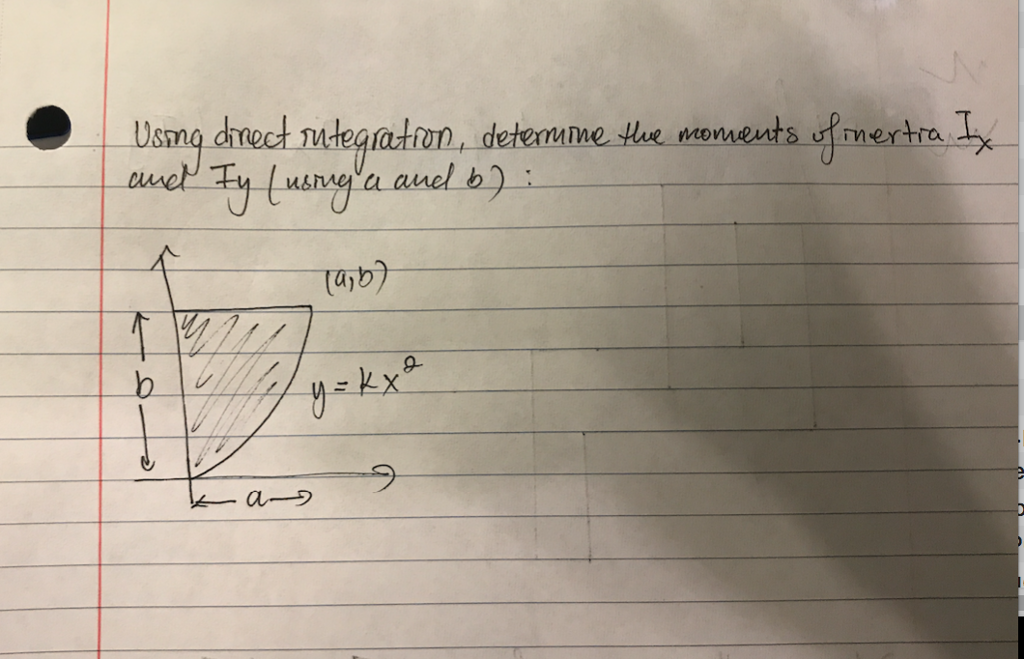 Using direct integration, determine the moments of inertia Ix
and Iy (using a and b) :
(a,b)
b
y = kx²
a